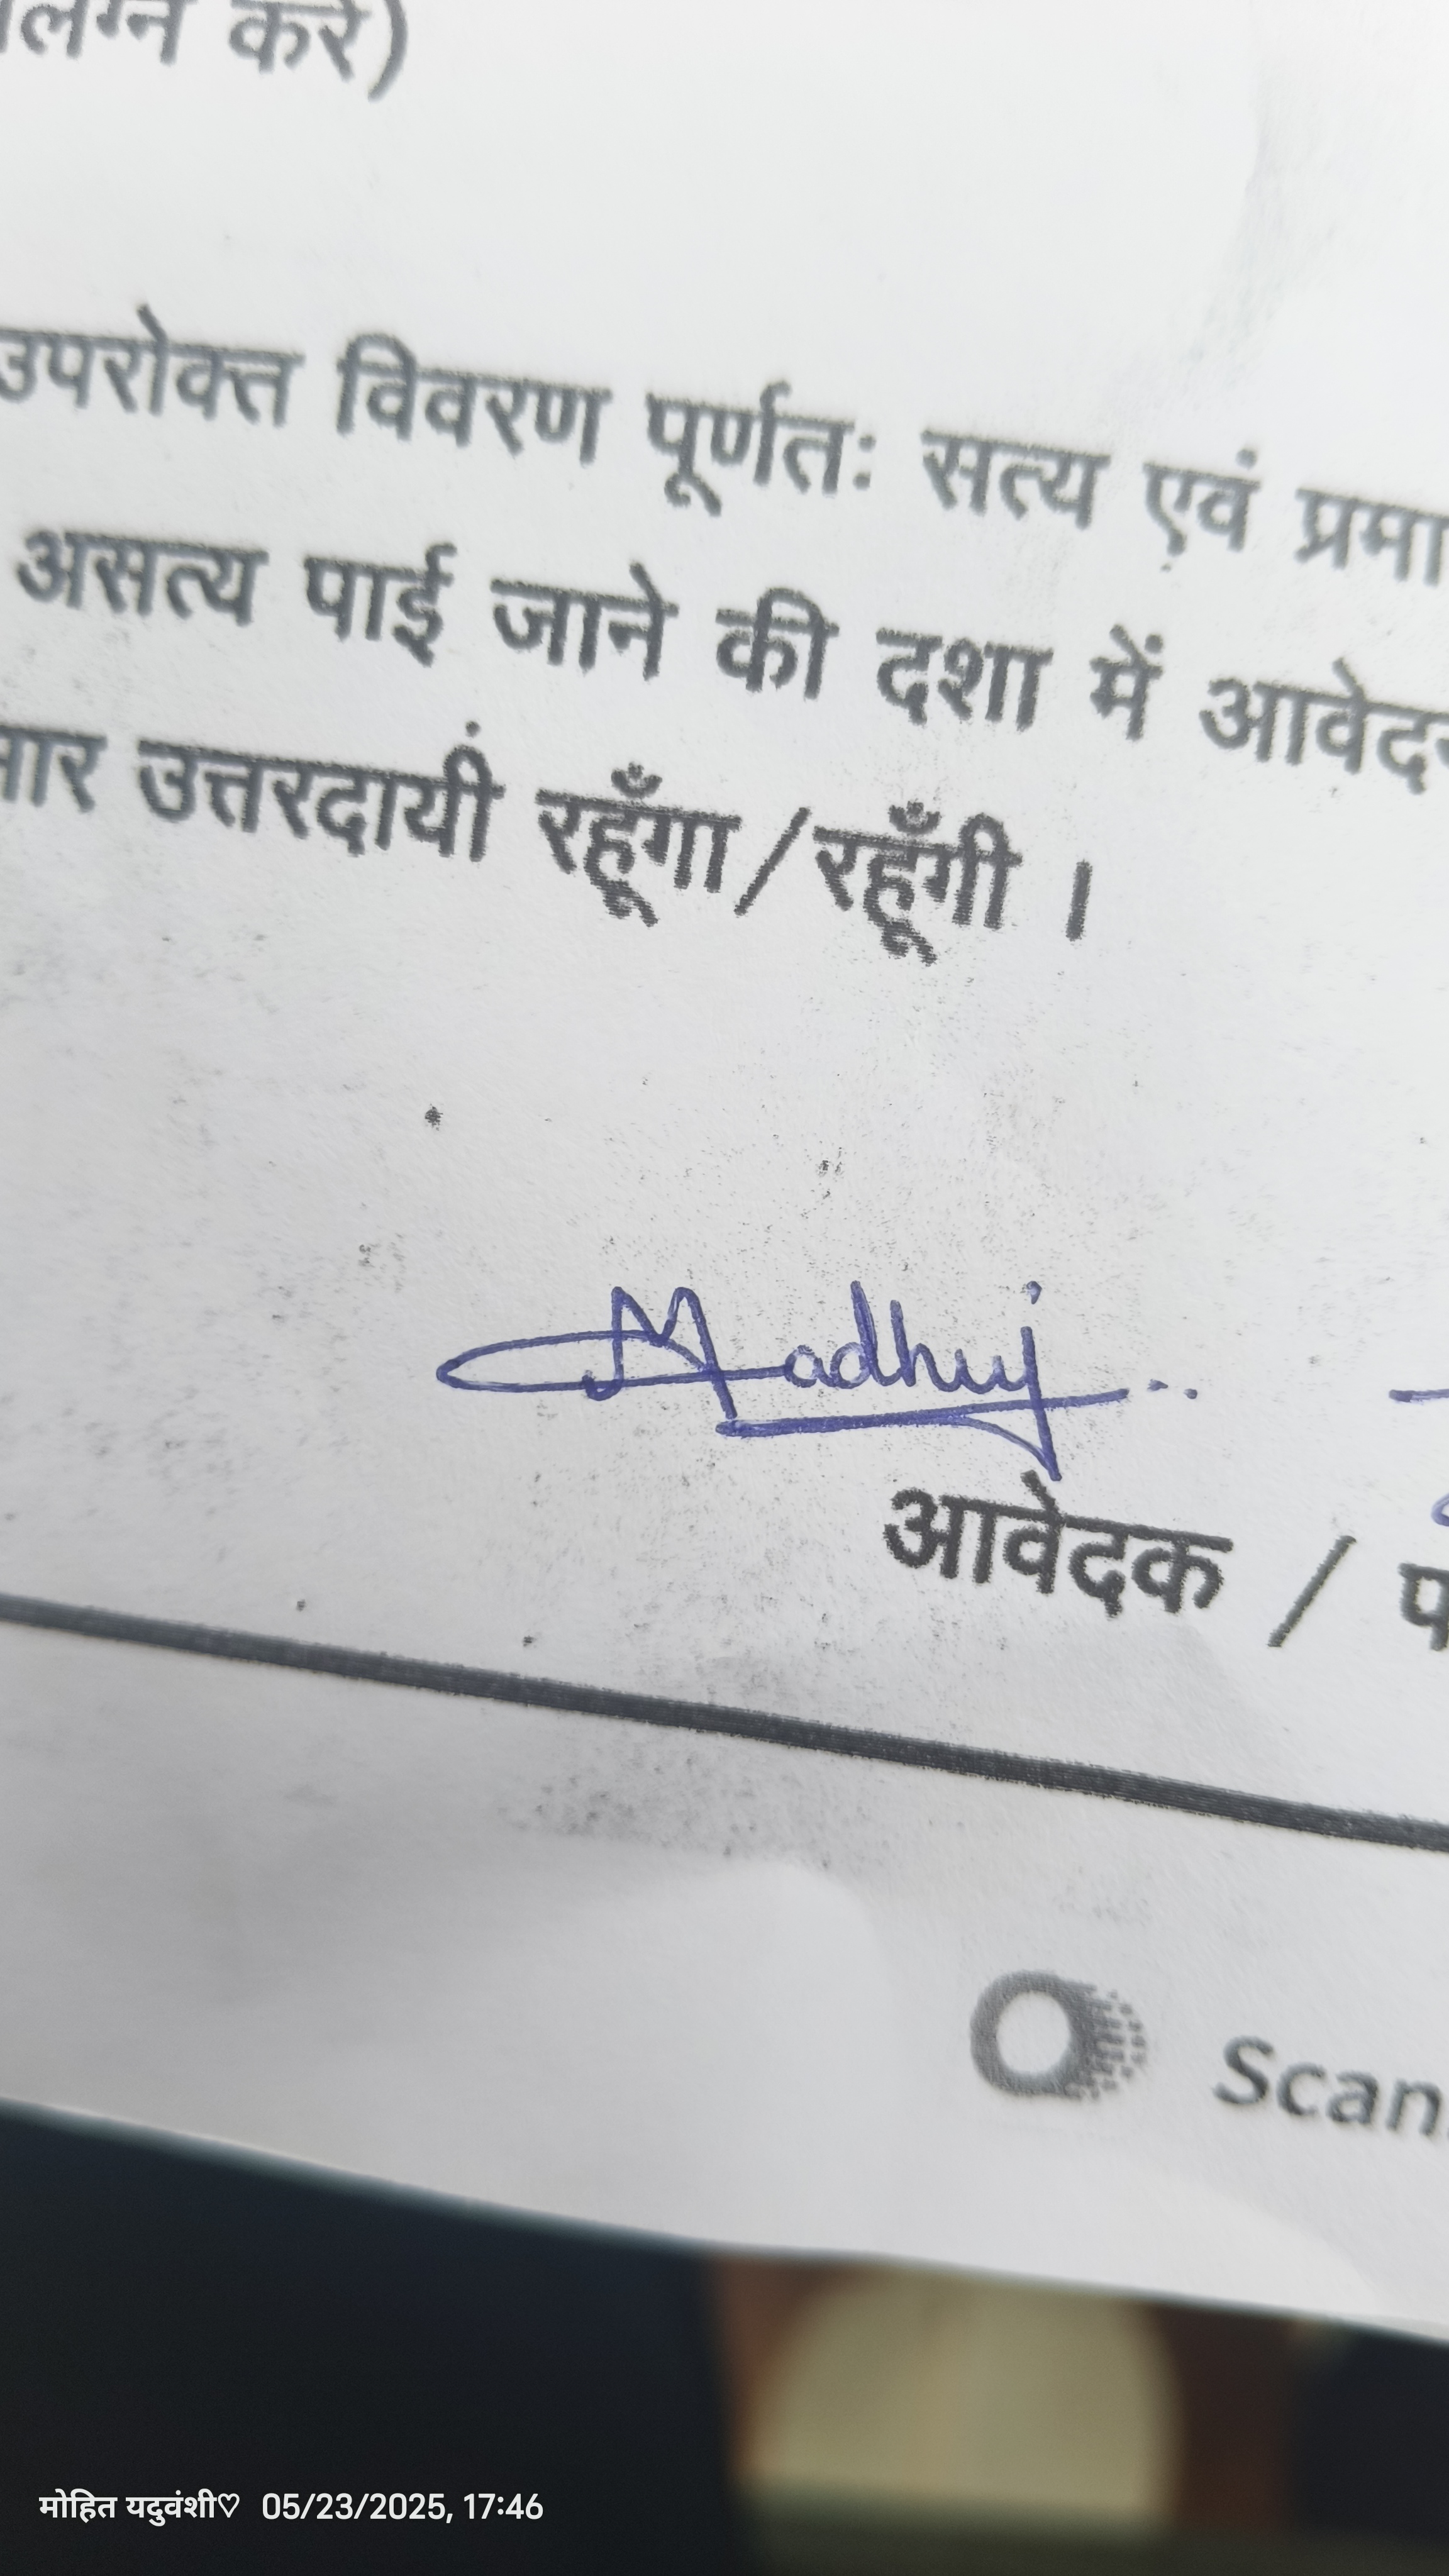 संलग्न करें)
उपरोक्त विवरण पूर्णतः सत्य एवं
असत्य पाई जाने की दशा में
उत्तरदायीं रहूँगा/रहूँगी ।
Madhuj..
आवेदक /
मोहित यदुवंशी♡ 05/23/2025, 17:46